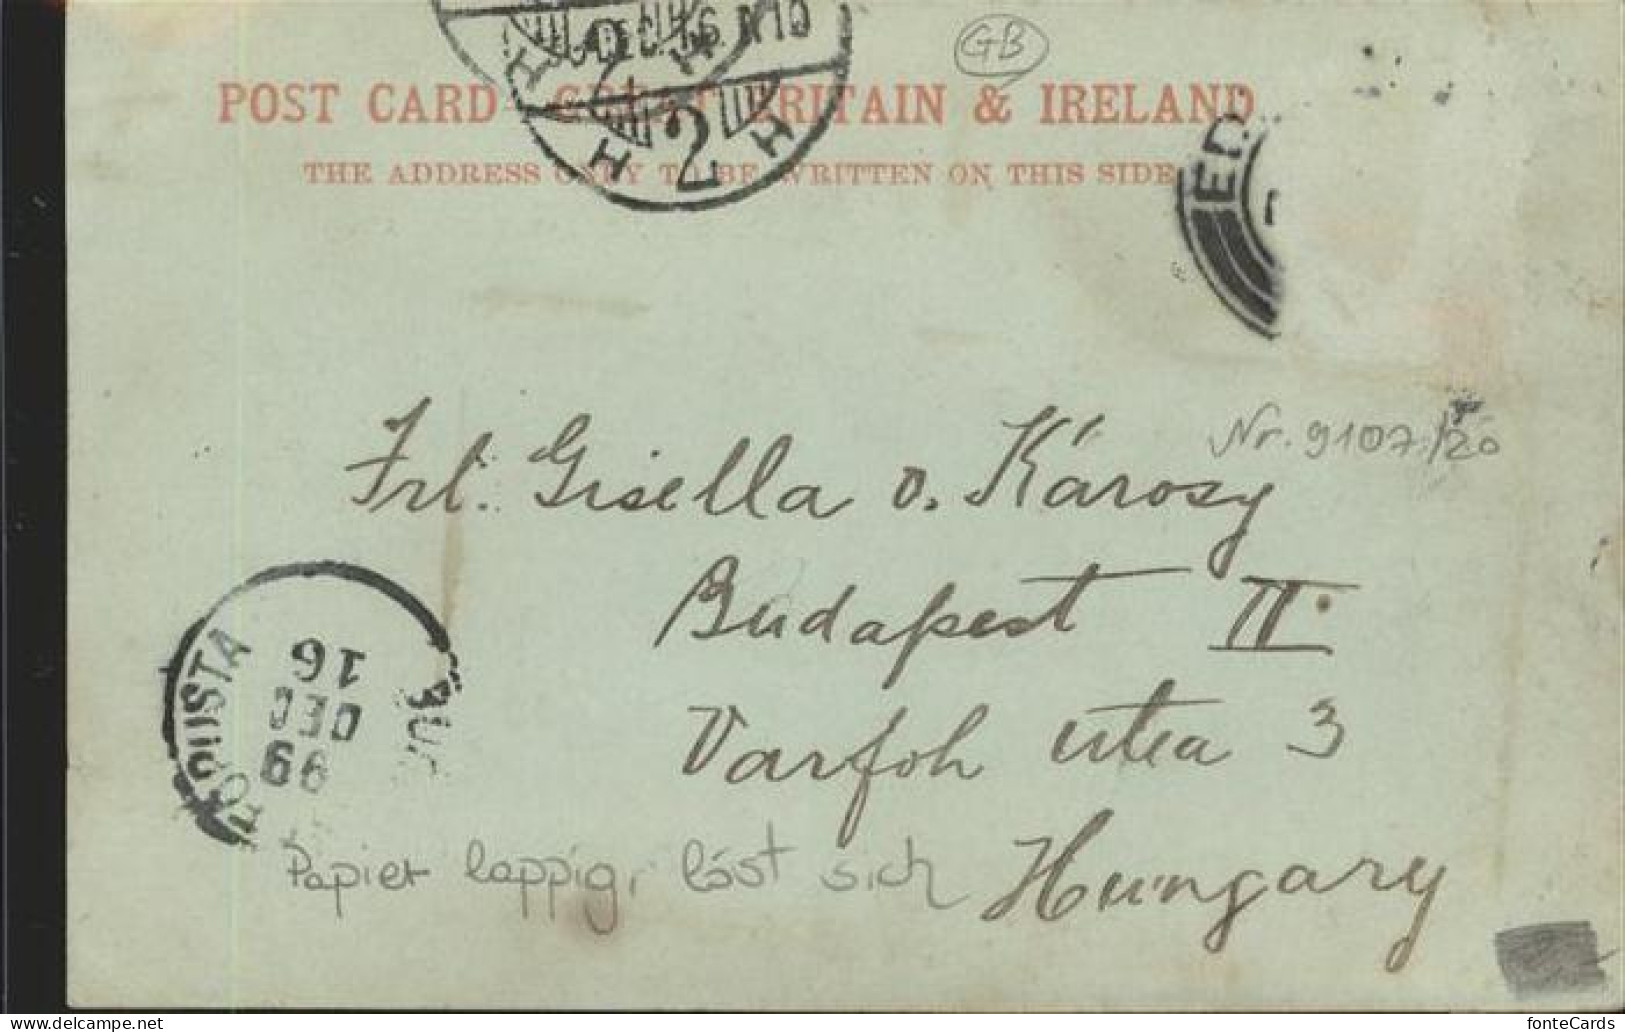 GB
POST CARD - GREAT BRITAIN & IRELAND
THE ADDRESS ONLY TO BE WRITTEN ON THIS SIDE
ED
Nr. 9107/20
Frl. Gisella v. Károsy
Budapest II.
Varfoh utca 3
Hungary
FŐPOSTA
16
DEC
99
Papier lappig, löst sich
fonteCards